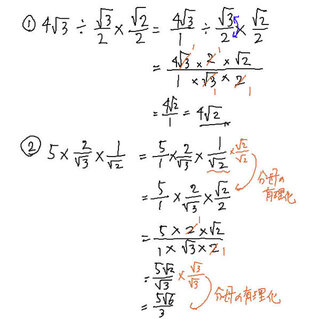 ① 4√3 ÷ √3/2 × √2/2 = 4√3/1 ÷ √3/2 × √2/2
= 4√3 × 2 × √2 / 1 × √3 × 2 1 1 1 1
= 4√2/1 = 4√2
② 5 × 2/√3 × 1/√2 = 5/1 × 2/√3 × 1/√2 × √2/√2
分母の有理化
= 5/1 × 2/√3 × √2/2
= 5 × 2 × √2 / 1 × √3 × 2 1 1
= 5√2/√3 × √3/√3
= 5√6/3 分母の有理化